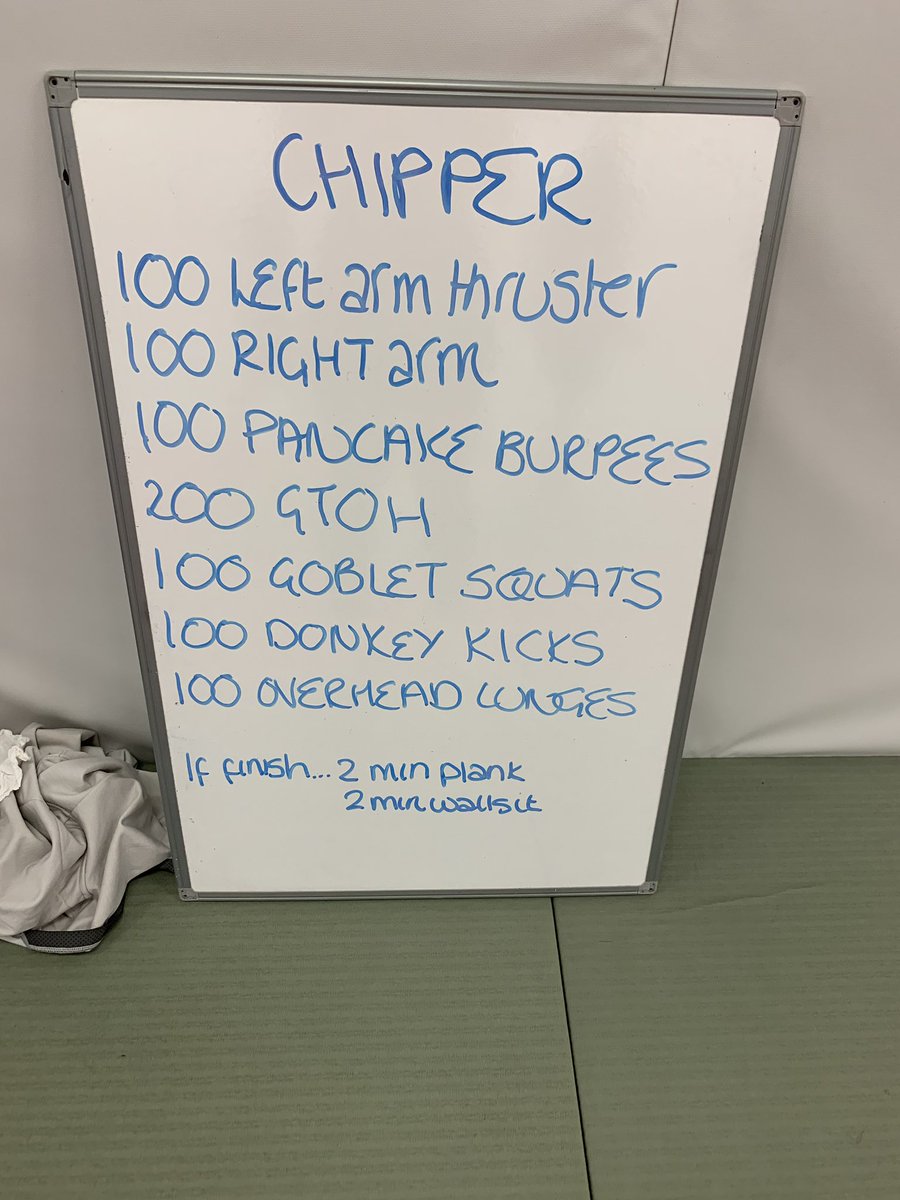 CHIPPER
100 Left arm thruster
100 RIGHT arm
100 PANCAKE BURPEES
200 GTOH
100 GOBLET SQUATS
100 DONKEY KICKS
100 OVERHEAD LUNGES
If finish... 2 min plank
2 min wallsit